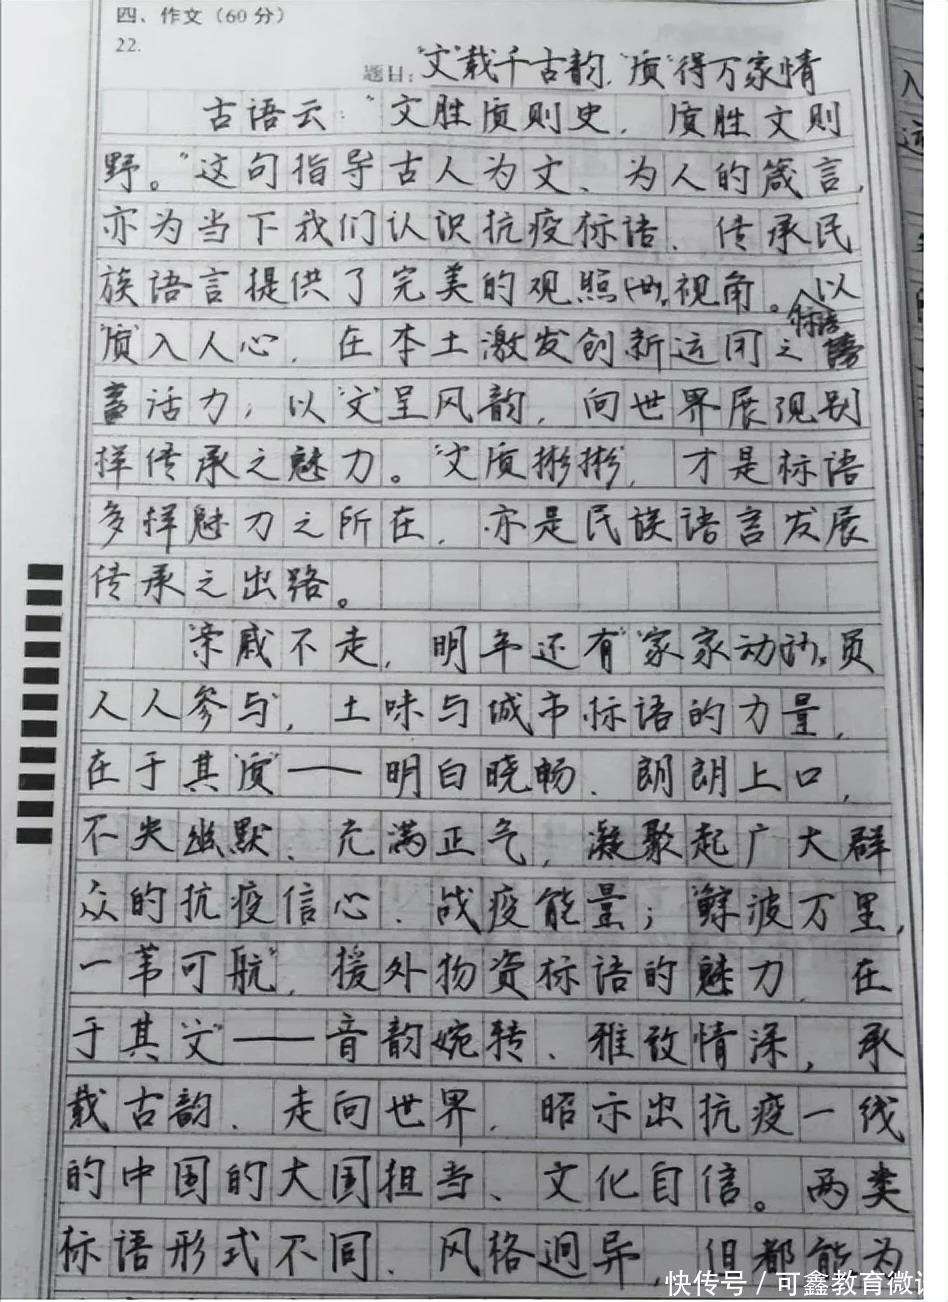 四、作文（60分）
22.
题目：“文”载千古韵，“质”得万家情
古语云：“文胜质则史，质胜文则
野。”这句指导古人为文、为人的箴言，
亦为当下我们认识抗疫标语、传承民
族语言提供了完美的观照视角。以
“质”入人心，在本土激发创新运用之标语
活力；以“文”呈风韵，向世界展现别
样传承之魅力。“文质彬彬”，才是标语
多样魅力之所在，亦是民族语言发展
传承之出路。
“亲戚不走，明年还有”“家家动员
人人参与”，土味与城市标语的力量，
在于其“质”——明白晓畅、朗朗上口，
不失幽默、充满正气，凝聚起广大群
众的抗疫信心、战疫能量；“鲸波万里，
一苇可航”，援外物资标语的魅力，在
于其“文”——音韵婉转、雅致情深，承
载古韵、走向世界，昭示出抗疫一线
的中国的大国担当、文化自信。两类
标语形式不同、风格迥异，但都能为
快传号／可鑫教育微课